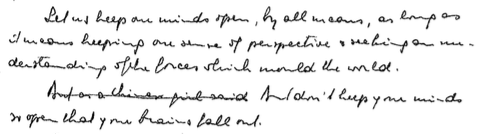 Let us keep our minds open, by all means, as long as
it means keeping our sense of perspective & seeking an un-
derstanding of the forces which mould the world.
But as a chinese girl said But don't keep your minds
so open that your brains fall out.